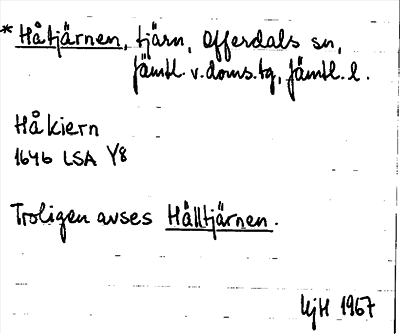 *Håtjärnen, tjärn, Offerdals sn,
Jämtl. v. doms. tg, Jämtl. l.
Håkiern
1646 LSA Y8
Troligen avses Hålltjärnen.
HjH 1967